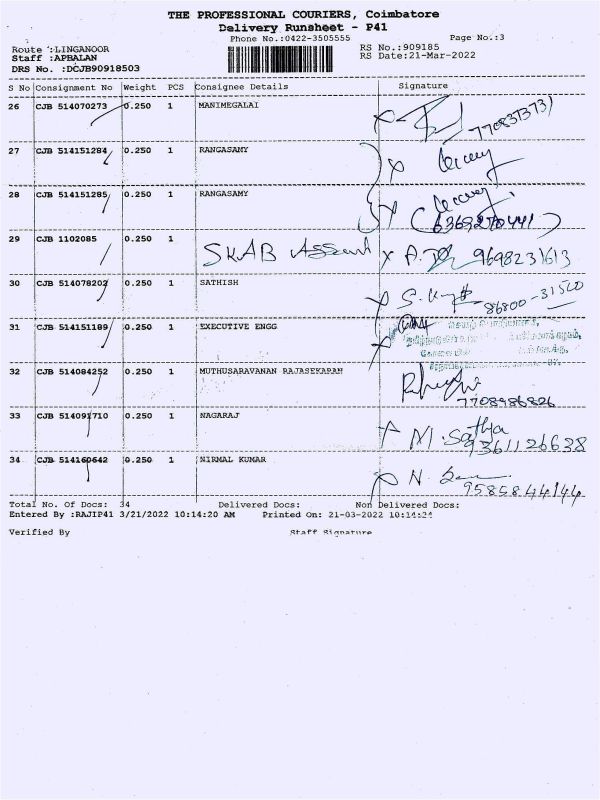 THE PROFESSIONAL COURIERS, Coimbatore
Delivery Runsheet - P41
Phone No.:0422-3505555 Page No.:3
Route :LINGANOOR RS No.:909185
Staff :APBALAN RS Date:21-Mar-2022
DRS No. :DCJB90918503
S No Consignment No Weight PCS Consignee Details Signature
26 CJB 514070273 0.250 1 MANIMEGALAI
7708373731
27 CJB 514151284 0.250 1 RANGASAMY
28 CJB 514151285 0.250 1 RANGASAMY
29 CJB 1102085 0.250 1 SKAB 9698231613
30 CJB 514078202 0.250 1 SATHISH
86800-31500
31 CJB 514151189 0.250 1 EXECUTIVE ENGG
32 CJB 514084252 0.250 1 MUTHUSARAVANAN RAJASEKARAN
7708986826
33 CJB 514091710 0.250 1 NAGARAJ
M. Sathya
9361126638
34 CJB 514160642 0.250 1 NIRMAL KUMAR
9585844144
Total No. Of Docs: 34 Delivered Docs: Non Delivered Docs:
Entered By :RAJIP41 3/21/2022 10:14:20 AM Printed On: 21-03-2022 10:14:24
Verified By Staff Signature